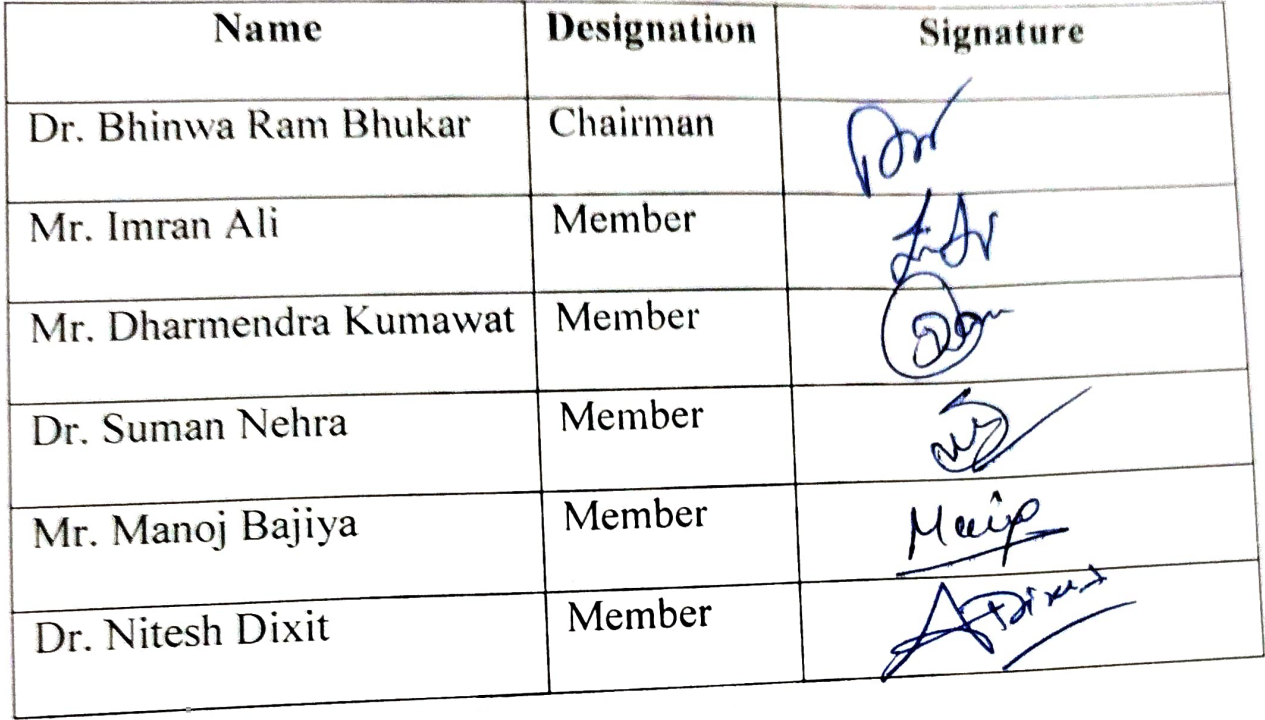 Name Designation Signature
Dr. Bhinwa Ram Bhukar Chairman
Mr. Imran Ali Member
Mr. Dharmendra Kumawat Member
Dr. Suman Nehra Member
Mr. Manoj Bajiya Member
Dr. Nitesh Dixit Member